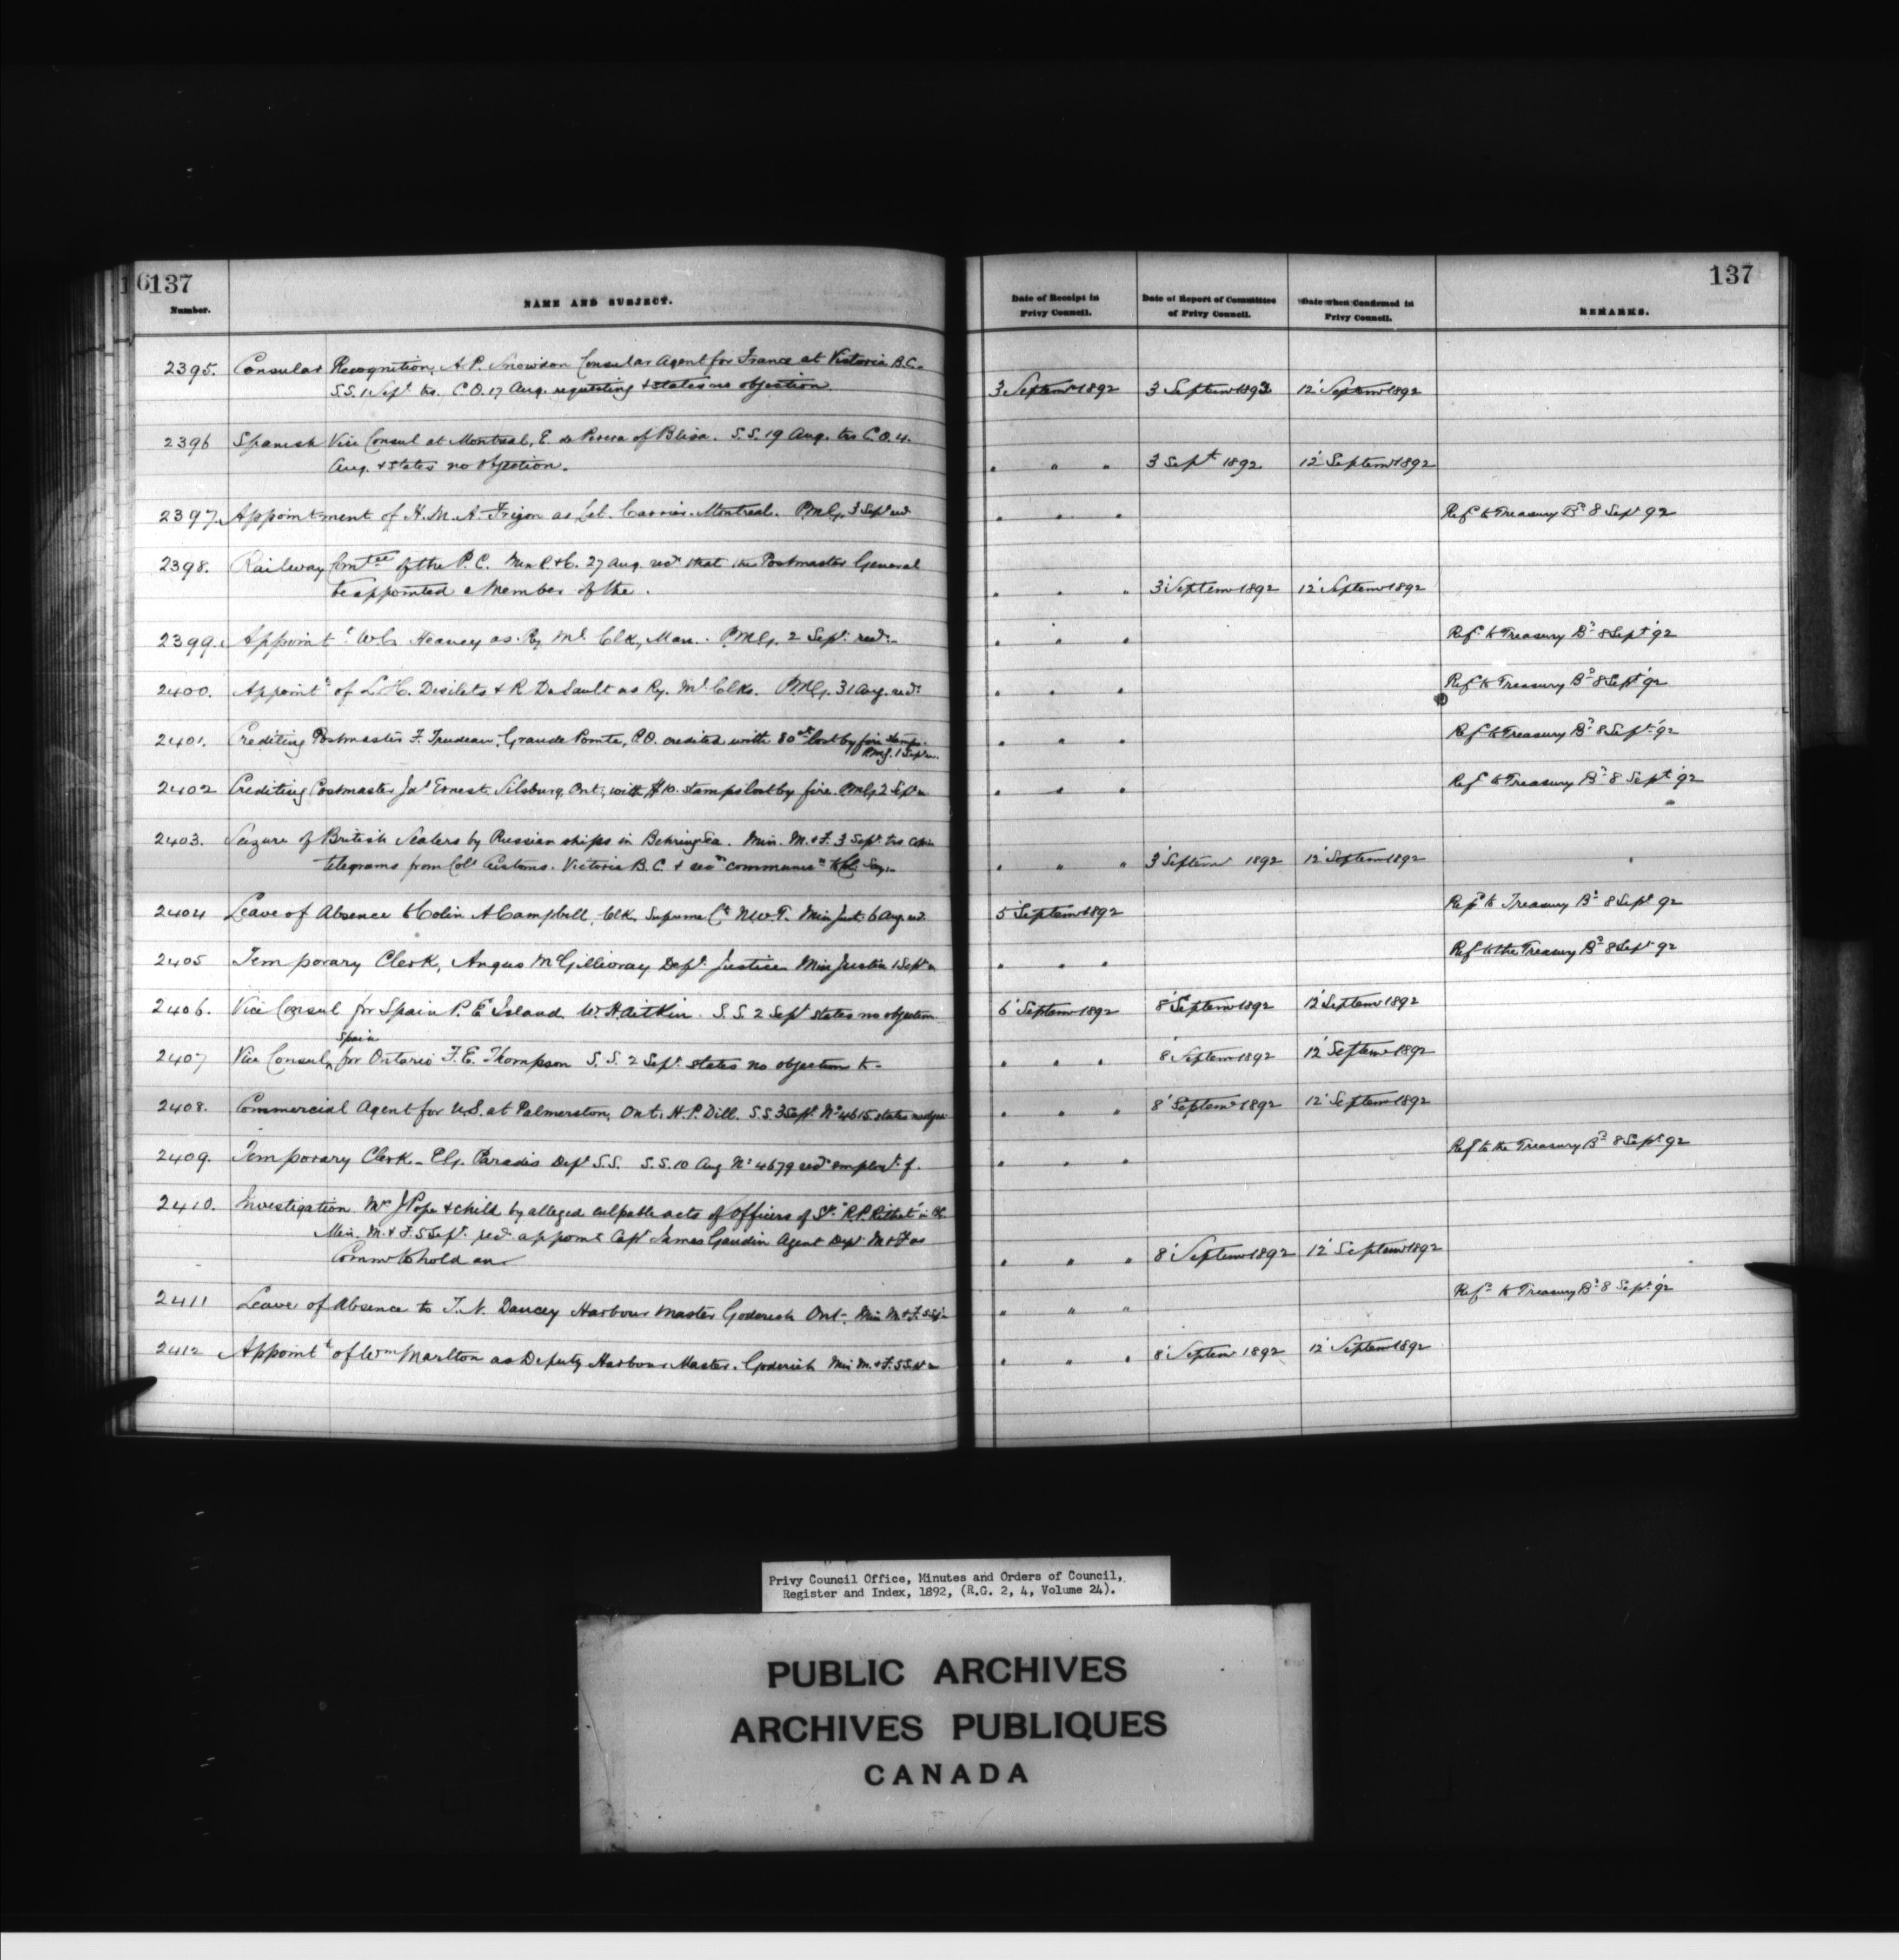 137
Number.
NAME AND SUBJECT.
2395. Consular Recognition, A. P. Snowdon Consular Agent for France at Victoria B.C.
S.S. 1 Sept trs. C.O. 17 Aug. requesting & states no objection
2396 Spanish Vice Consul at Montreal, E. de Perera of Blisa. S.S. 19 Aug. trs C.O. 4.
Aug. & states no objection.
2397. Appointment of H. M. A. Frigon as Let. Carrier. Montreal. P.M.G. 3 Sept recd
2398. Railway Comtee of the P.C. Min R & C. 27 Aug. recd that the Postmaster General
be appointed a Member of the.
2399. Appointt W G Heaney as Ry Ml Clk, Man. P.M.G. 2 Sept. recd.
2400. Appointt of L. H. Desilets & R DuSault as Ry. Ml Clks. P.M.G. 31 Aug. recd
2401. Crediting Postmaster F. Trudeau, Grande Pointe, P.O. credited with 80cts lost by fire stamps.
P.M.G. 1 Sept
2402 Crediting Postmaster Jas Ernest Silsburg, Ont., with $10. stamps lost by fire. P.M.G. 2 Sept
2403. Seizure of British Sealers by Russian ships in Behring Sea. Min. M. & F. 3 Sept. trs copies
telegrams from Coll Customs. Victoria B.C. & recd communn to Col. Secy.
2404 Leave of Absence to Colin A Campbell, Clk, Supreme Ct N.W.T. Min Just 6 Aug. recd.
2405 Temporary Clerk, Angus McGillivray Dept Justice Min Justice 1 Sept
2406. Vice Consul for Spain P. E Island. W. H. Aitkin. S.S. 2 Sept states no objection
Spain
2407 Vice Consul for Ontario F. E. Thompson S.S. 2 Sept. states no objection to
2408. Commercial Agent for U.S. at Palmerston, Ont. H. P. Dill. S.S 3 Sept. No 4615 states
2409. Temporary Clerk. E G. Paradis Dept S.S. S.S. 10 Aug No 4679 recd employt of.
2410. Investigation Mrs J Pope & child by alleged culpable acts of Officers of Str "R.P. Rithet" in BC.
Min. M. & F. 5 Sept. recd appoint Capt James Gaudin Agent Dept M & F as
Commr to hold an
2411 Leave of Absence to T. N. Dancey Harbour Master Goderich Ont. Min M & F. 5 Sept
2412 Appointt of Wm Marlton as Deputy Harbour Master. Goderich Min M. & F.
137
Date of Receipt in Privy Council.
Date of Report of Committee of Privy Council.
Date when Confirmed in Privy Council.
REMARKS.
3 September 1892 3 September 1892 12 September 1892
" " " 3 Sept 1892 12 September 1892
" " " Refd to Treasury Bd 8 Sept 92
" " " 3 September 1892 12 September 1892
" " " Refd to Treasury Bd 8 Sept '92
" " " Refd to Treasury Bd 8 Sept '92
" " " Refd to Treasury Bd 8 Sept. '92
" " " Refd to Treasury Bd 8 Sept '92
" " " 3 September 1892 12 September 1892
5 September 1892 Refd to Treasury Bd 8 Sept 92
" " " Refd to the Treasury Bd 8 Sept 92
6 September 1892 8 September 1892 12 September 1892
" " " 8 September 1892 12 September 1892
" " " 8 September 1892 12 September 1892
" " " Refd to the Treasury Bd 8 Sept 92
" " " 8 September 1892 12 September 1892
" " " Refd to Treasury Bd 8 Sept. '92
" " " 8 September 1892 12 September 1892
Privy Council Office, Minutes and Orders of Council,
Register and Index, 1892, (R.G. 2, 4, Volume 24).
PUBLIC ARCHIVES
ARCHIVES PUBLIQUES
CANADA